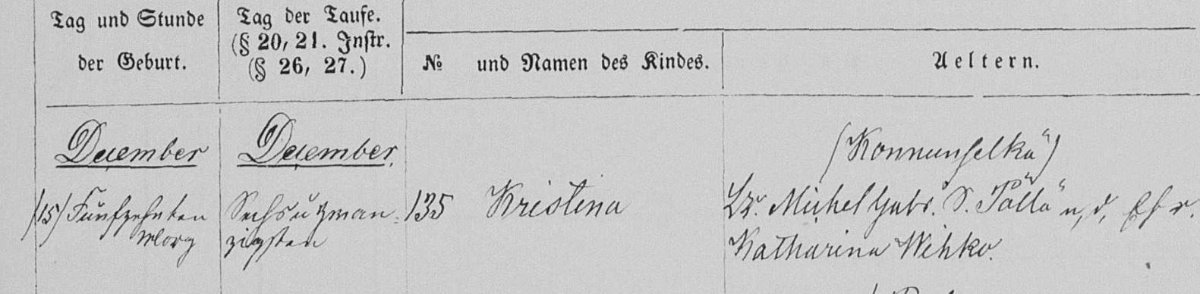 Tag und Stunde
der Geburt.
Tag der Taufe.
(§ 20, 21. Instr.
(§ 26, 27.)
№ und Namen des Kindes.
Aeltern.
December
December.
(Konnunselkä)
(15) Fünfzehnten
Morg
Sechsuzwan-
zigsten
135 Kristina
Michel Gabr. S. Pöllö u, d,
Katharina Wihko.